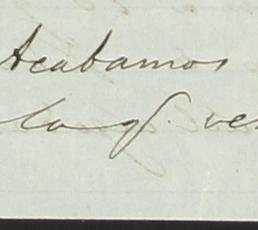 Acabamos
la q. ve